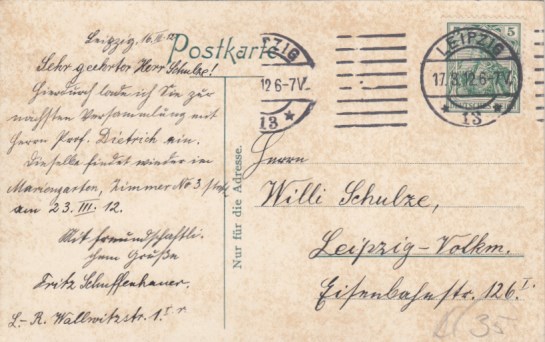 Leipzig, 16. III. 12.
Postkarte
Sehr geehrter Herr Schulze!
Hierdurch lade ich Sie zur
nächsten Versammlung mit
Herrn Prof. Dietrich ein.
Dieselbe findet wieder im
Mariengarten, Zimmer No 3 statt
am 23. III. 12.
Mit freundschaftli-
chem Grüße
Fritz Schuffenhauer.
L.-R. Wallwitzstr. 1.
Nur für die Adresse.
ZIG
12.6-7V.
13 *
LEIPZIG
17.3.12.6-7V.
* 13 *
5
Herrn
Willi Schulze,
Leipzig-Volkm.
Eisenbahnstr. 126 I.
35